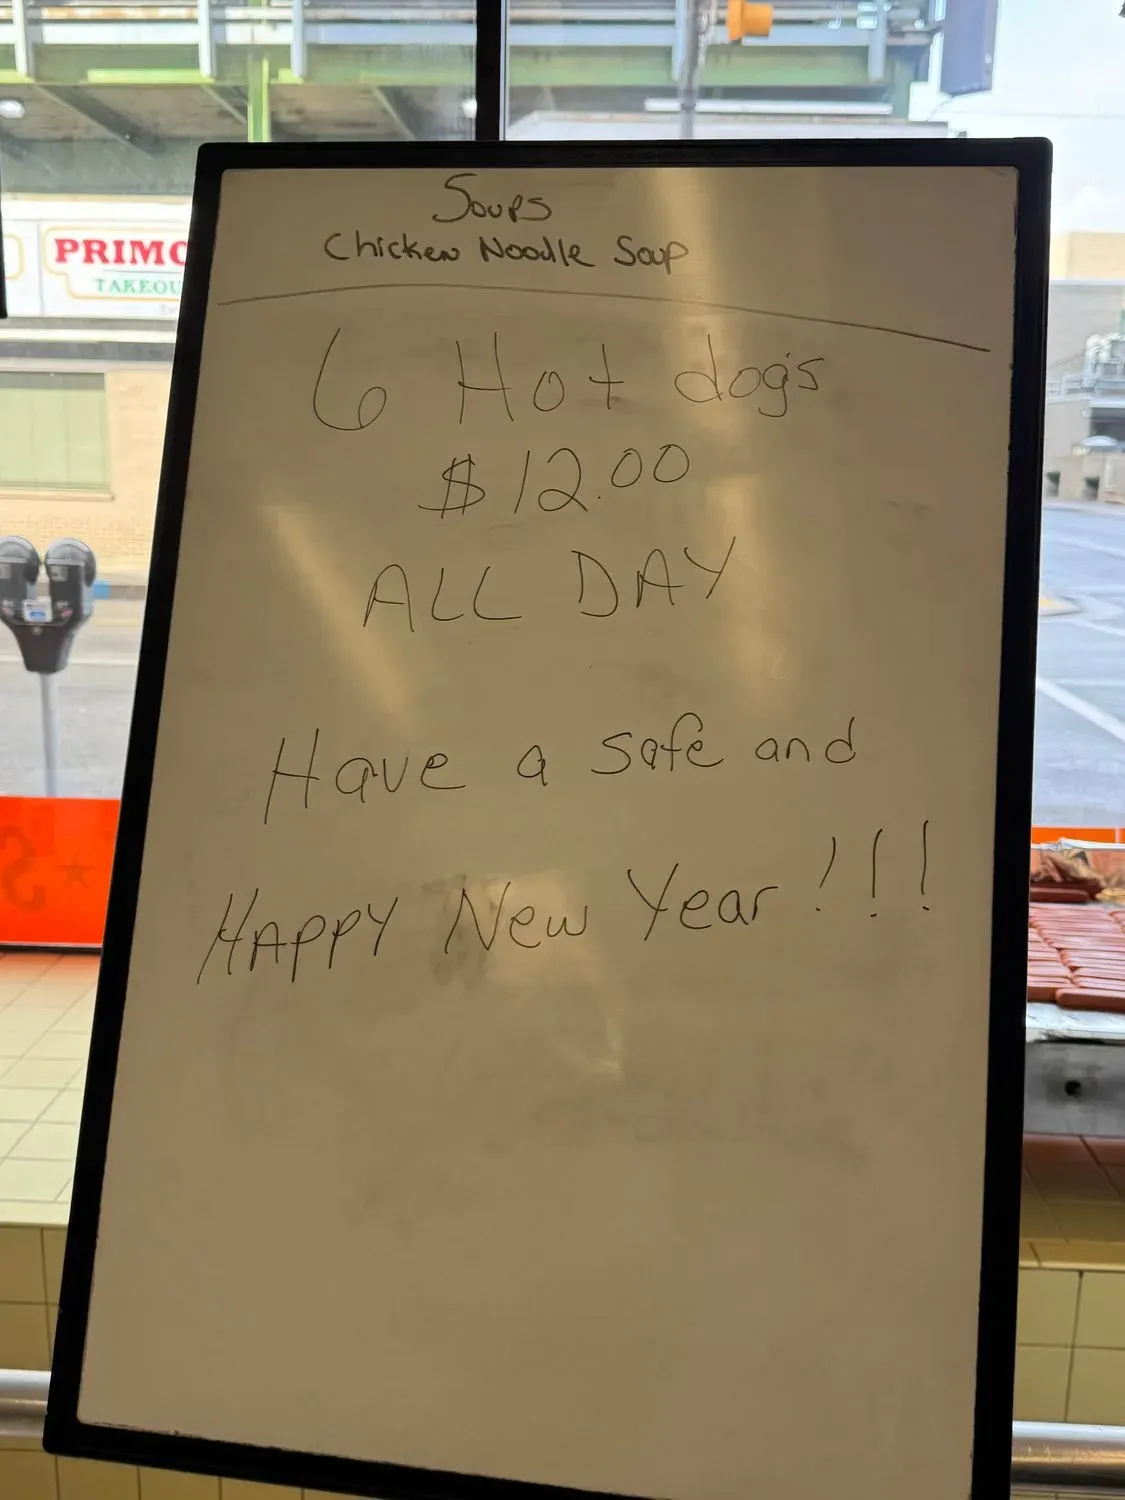 Soups
Chicken Noodle Soup
6 Hot dog's
$12.00
ALL DAY
Have a safe and
HAPPY New Year!!!
PRIMO
TAKEOU